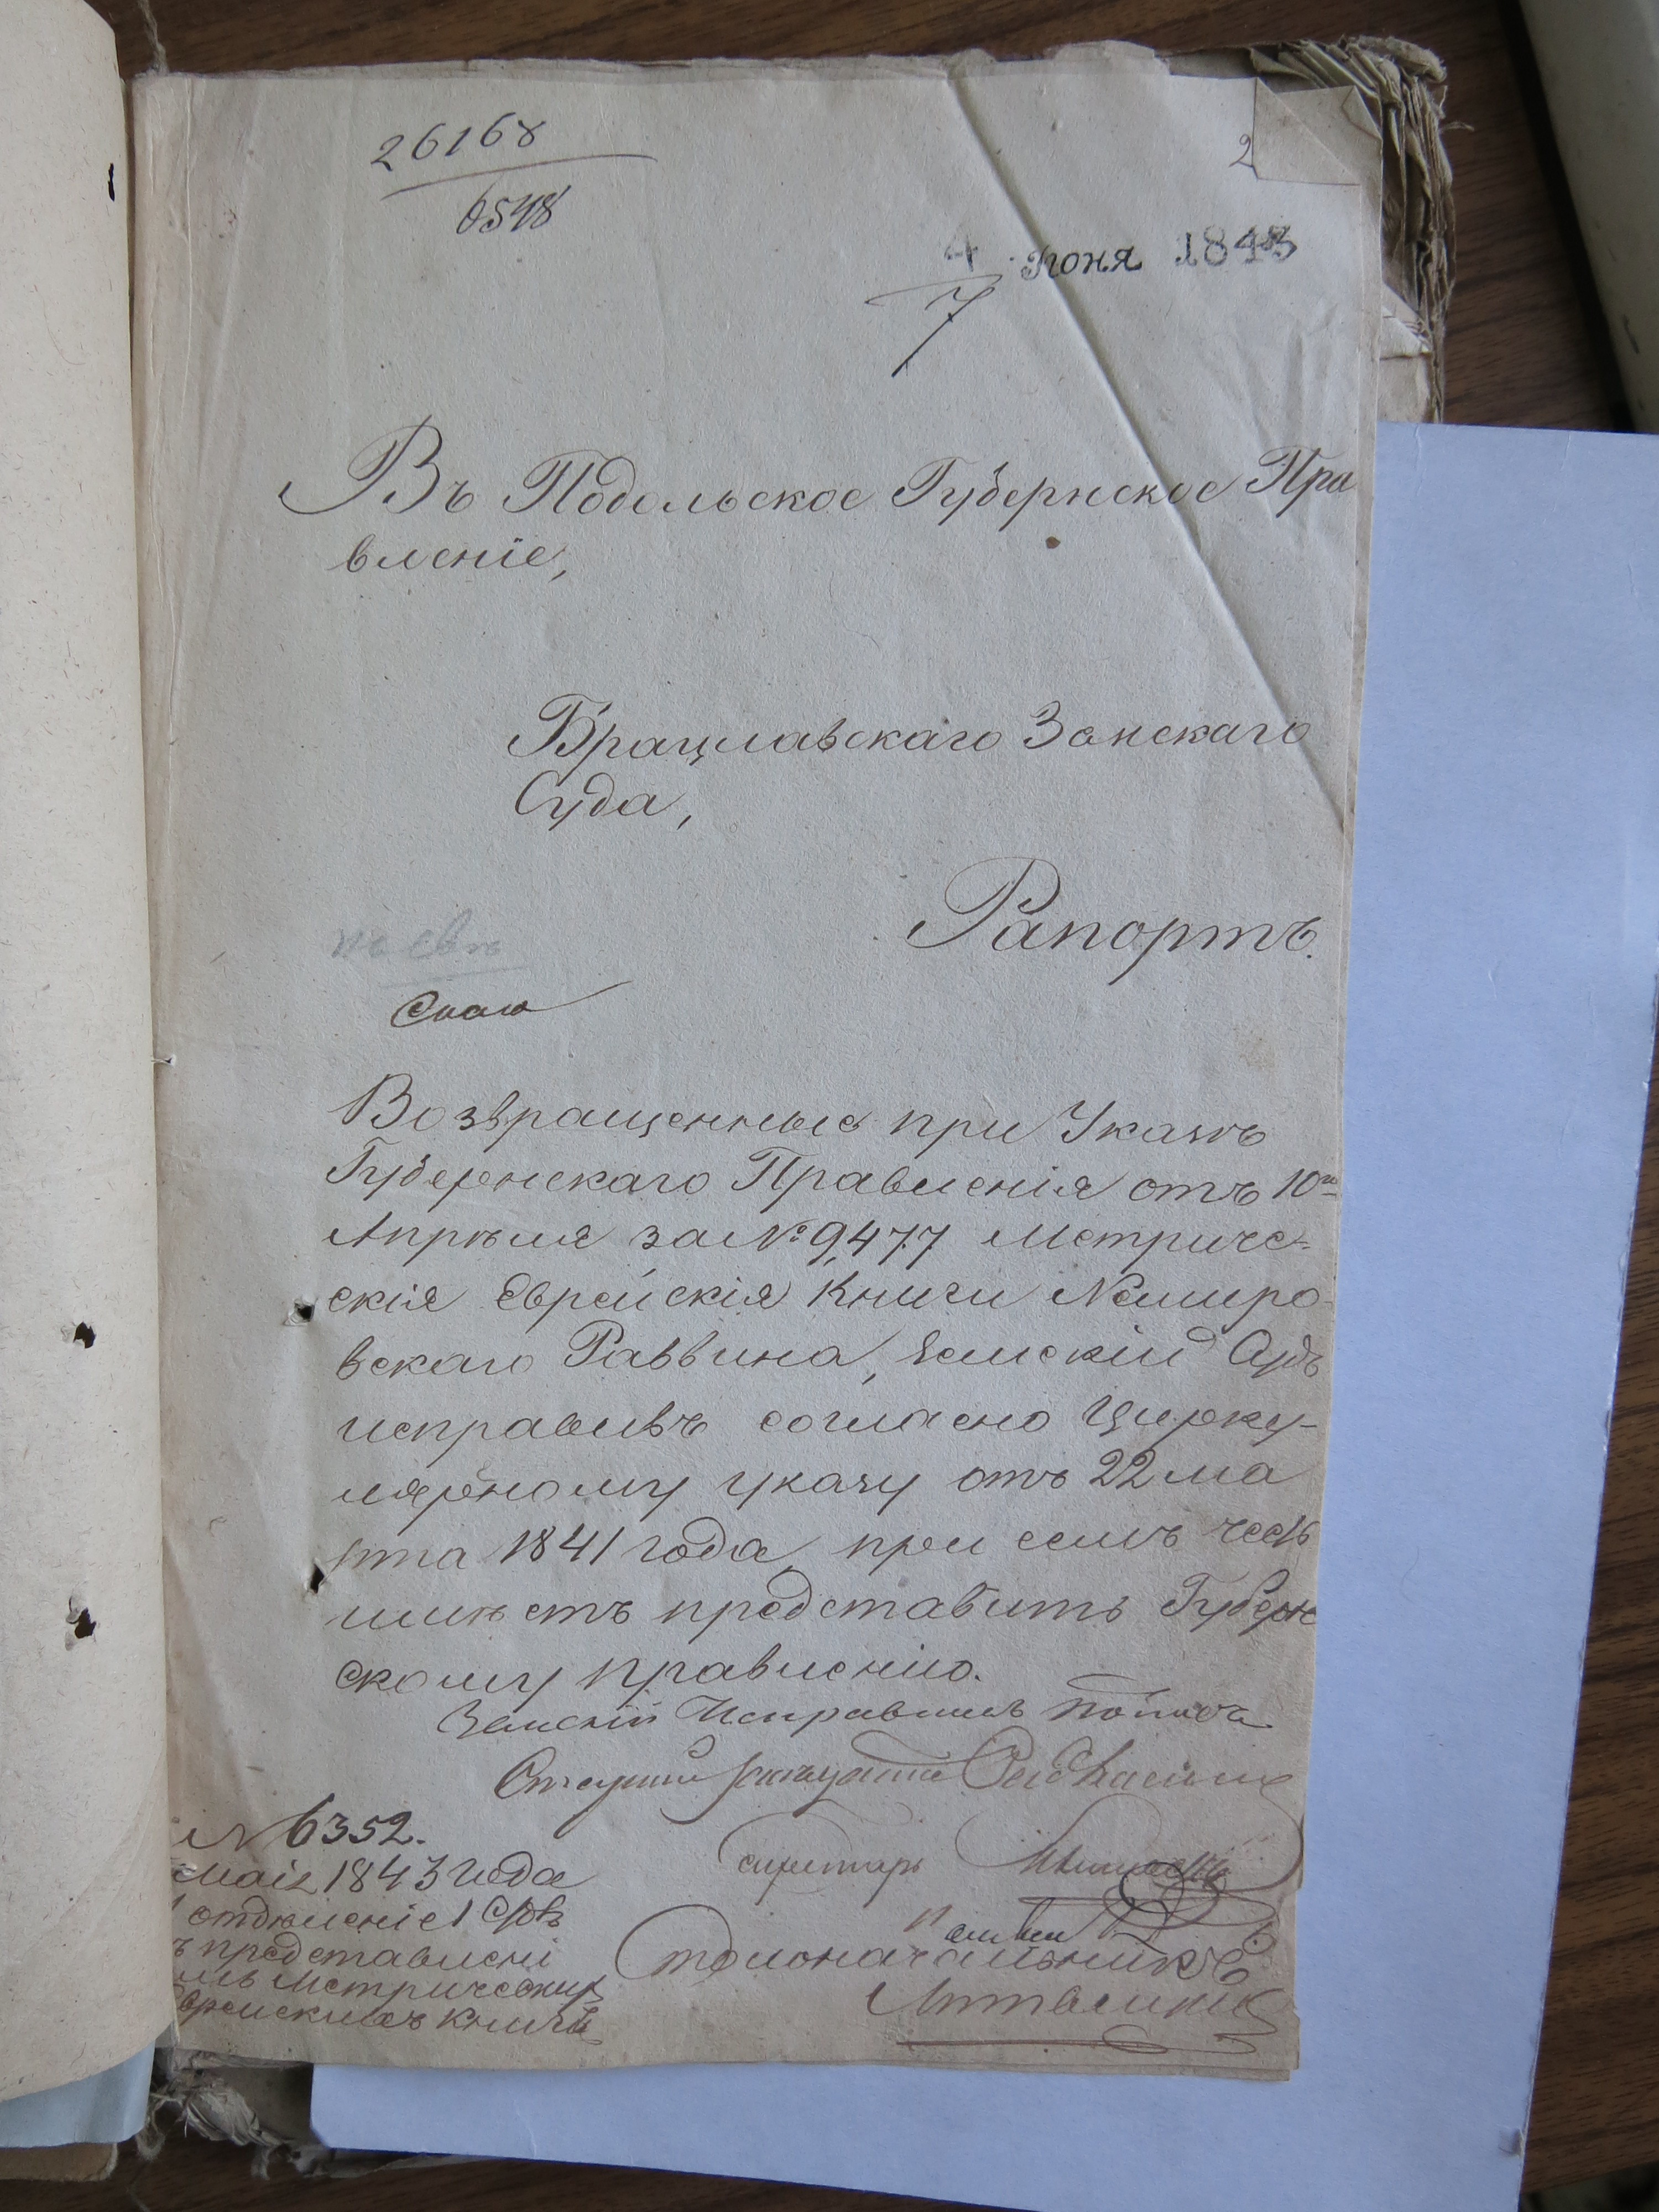 26168
6548
2
4 Июня 1843
7
Въ Подольское Губернское Пра
вленіе,
Брацлавскаго Земскаго
Суда,
Рапортъ.
Возвращенные при Указѣ
Губернскаго Правленія отъ 10го
Апрѣля за № 9,477 Метриче-
скія Еврейскія Книги Немиро-
вскаго Раввина, Земскій Судъ
исправивъ согласно Цирку-
лярному указу отъ 22 ма
рта 1841 года, при семъ честь
имѣетъ представить Губерн
скому правленію.
Земскій Исправникъ
Секретарь
№ 6352.
Маія 1843 года
отдѣленіе 1 Столъ
ъ представлені
мъ Метрическихъ
врейскихъ книгъ
Столоначальникъ